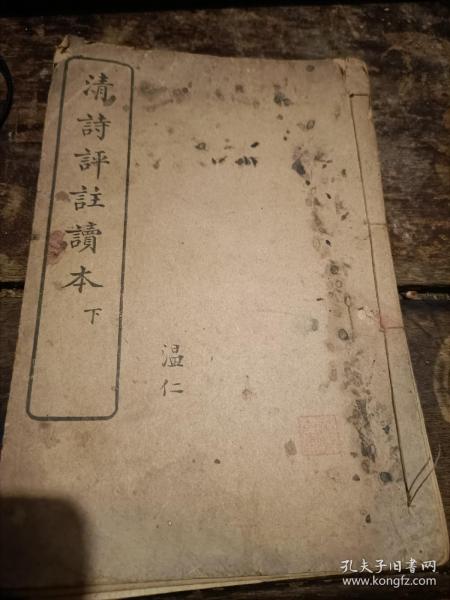 清詩評註讀本 下
温仁
孔夫子旧书网
www.kongfz.com